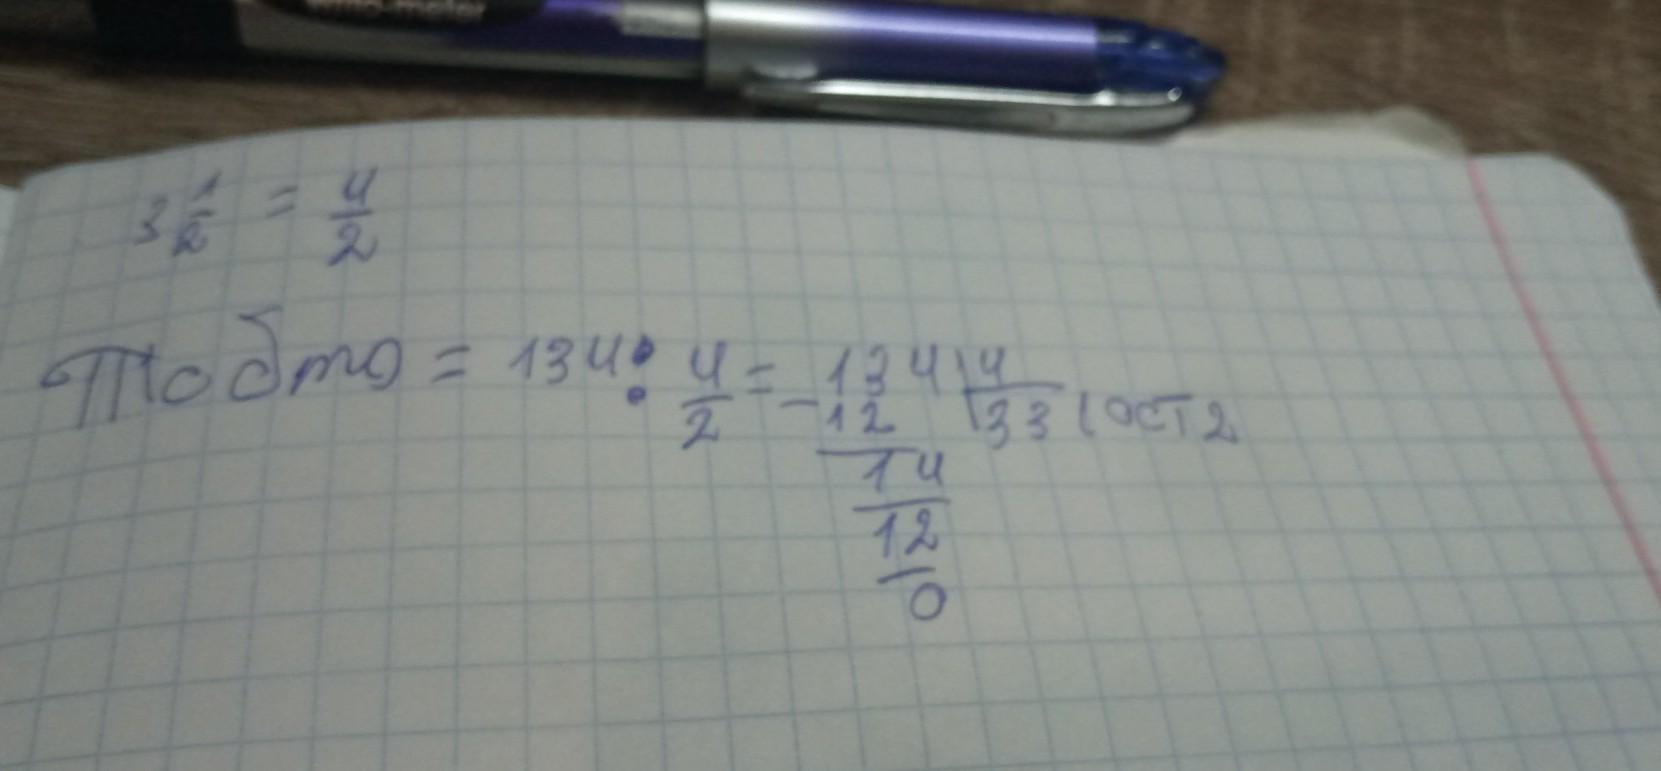 3 1/2 = 4/2
Тобто = 134 : 4/2 = 134 | 4
- 12 33 (ост 2
14
12
0